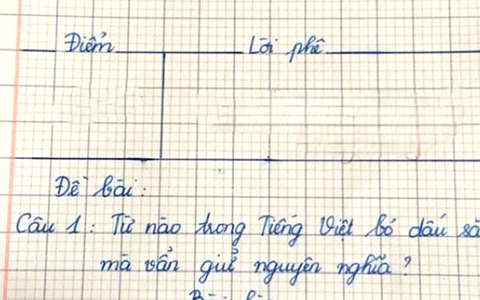 Điểm Lời phê
Đề bài:
Câu 1: Từ nào trong Tiếng Việt bỏ dấu sắ
mà vẩn giữ nguyên nghĩa?